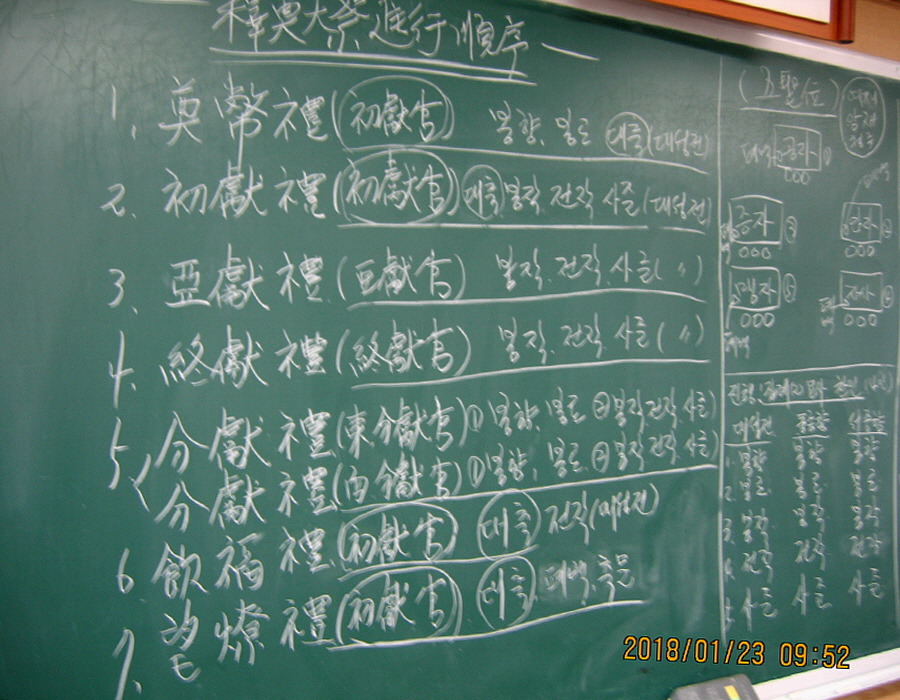 釋奠大祭進行順序
1. 奠幣禮(初獻官) 봉향, 봉로 대축(대성전)
2. 初獻禮(初獻官) 대축, 봉작 전작 사준(대성전)
3. 亞獻禮(亞獻官) 봉작, 전작, 사준(〃)
4. 終獻禮(終獻官) 봉작, 전작, 사준(〃)
5. 分獻禮(東分獻官) ① 봉향, 봉로 ② 봉작, 전작, 사준)
分獻禮(西分獻官) ① 봉향, 봉로 ② 봉작 전작 사준)
6. 飮福禮(初獻官) 대축 전작(대성전)
7. 望燎禮(初獻官) 대축, 폐백, 축문
공자 ①
000
증자 안자
000 000
맹자 자사
000 000
대성전
1. 봉향 봉향 봉향
2. 봉로 봉로 봉로
3. 봉작 봉작 봉작
4. 전작 전작 전작
5. 사준 사준 사준
2018/01/23 09:52